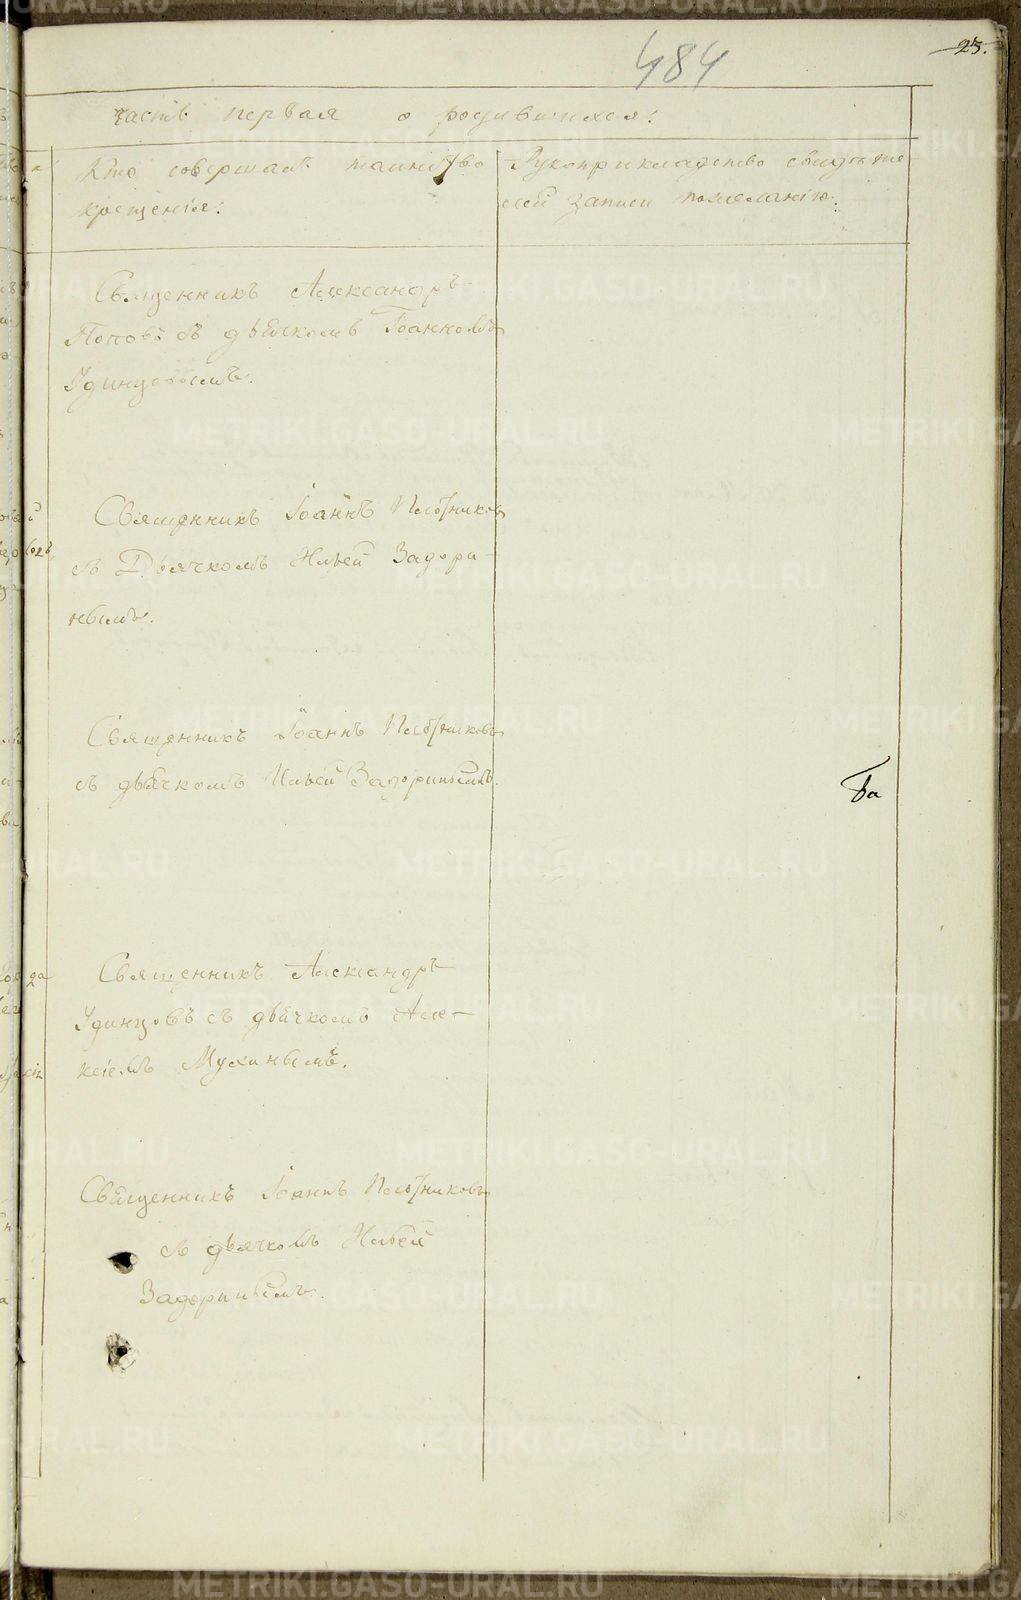 484
23.
часть первая о родившихся:
Кто совершалъ таинство
крещенія:
Рукоприкладство свидѣте
лей записи пожеланію:
Священникъ Александръ
Поповъ съ дьячкомъ Іоанномъ
Удинцовымъ.
Священникъ Іоаннъ Плотниковъ
съ Дьячкомъ Ильей Задори-
нымъ.
Священникъ Іоаннъ Плотниковъ
съ дьячкомъ Ильей Задоринымъ.
Священникъ Александръ
Удинцовъ съ дьячкомъ Але-
ксіемъ Мухинымъ.
Священникъ Іоаннъ Плотниковъ
съ дьячкомъ Ильей
Задоринымъ.
METRIKI.GASO-URAL.RU